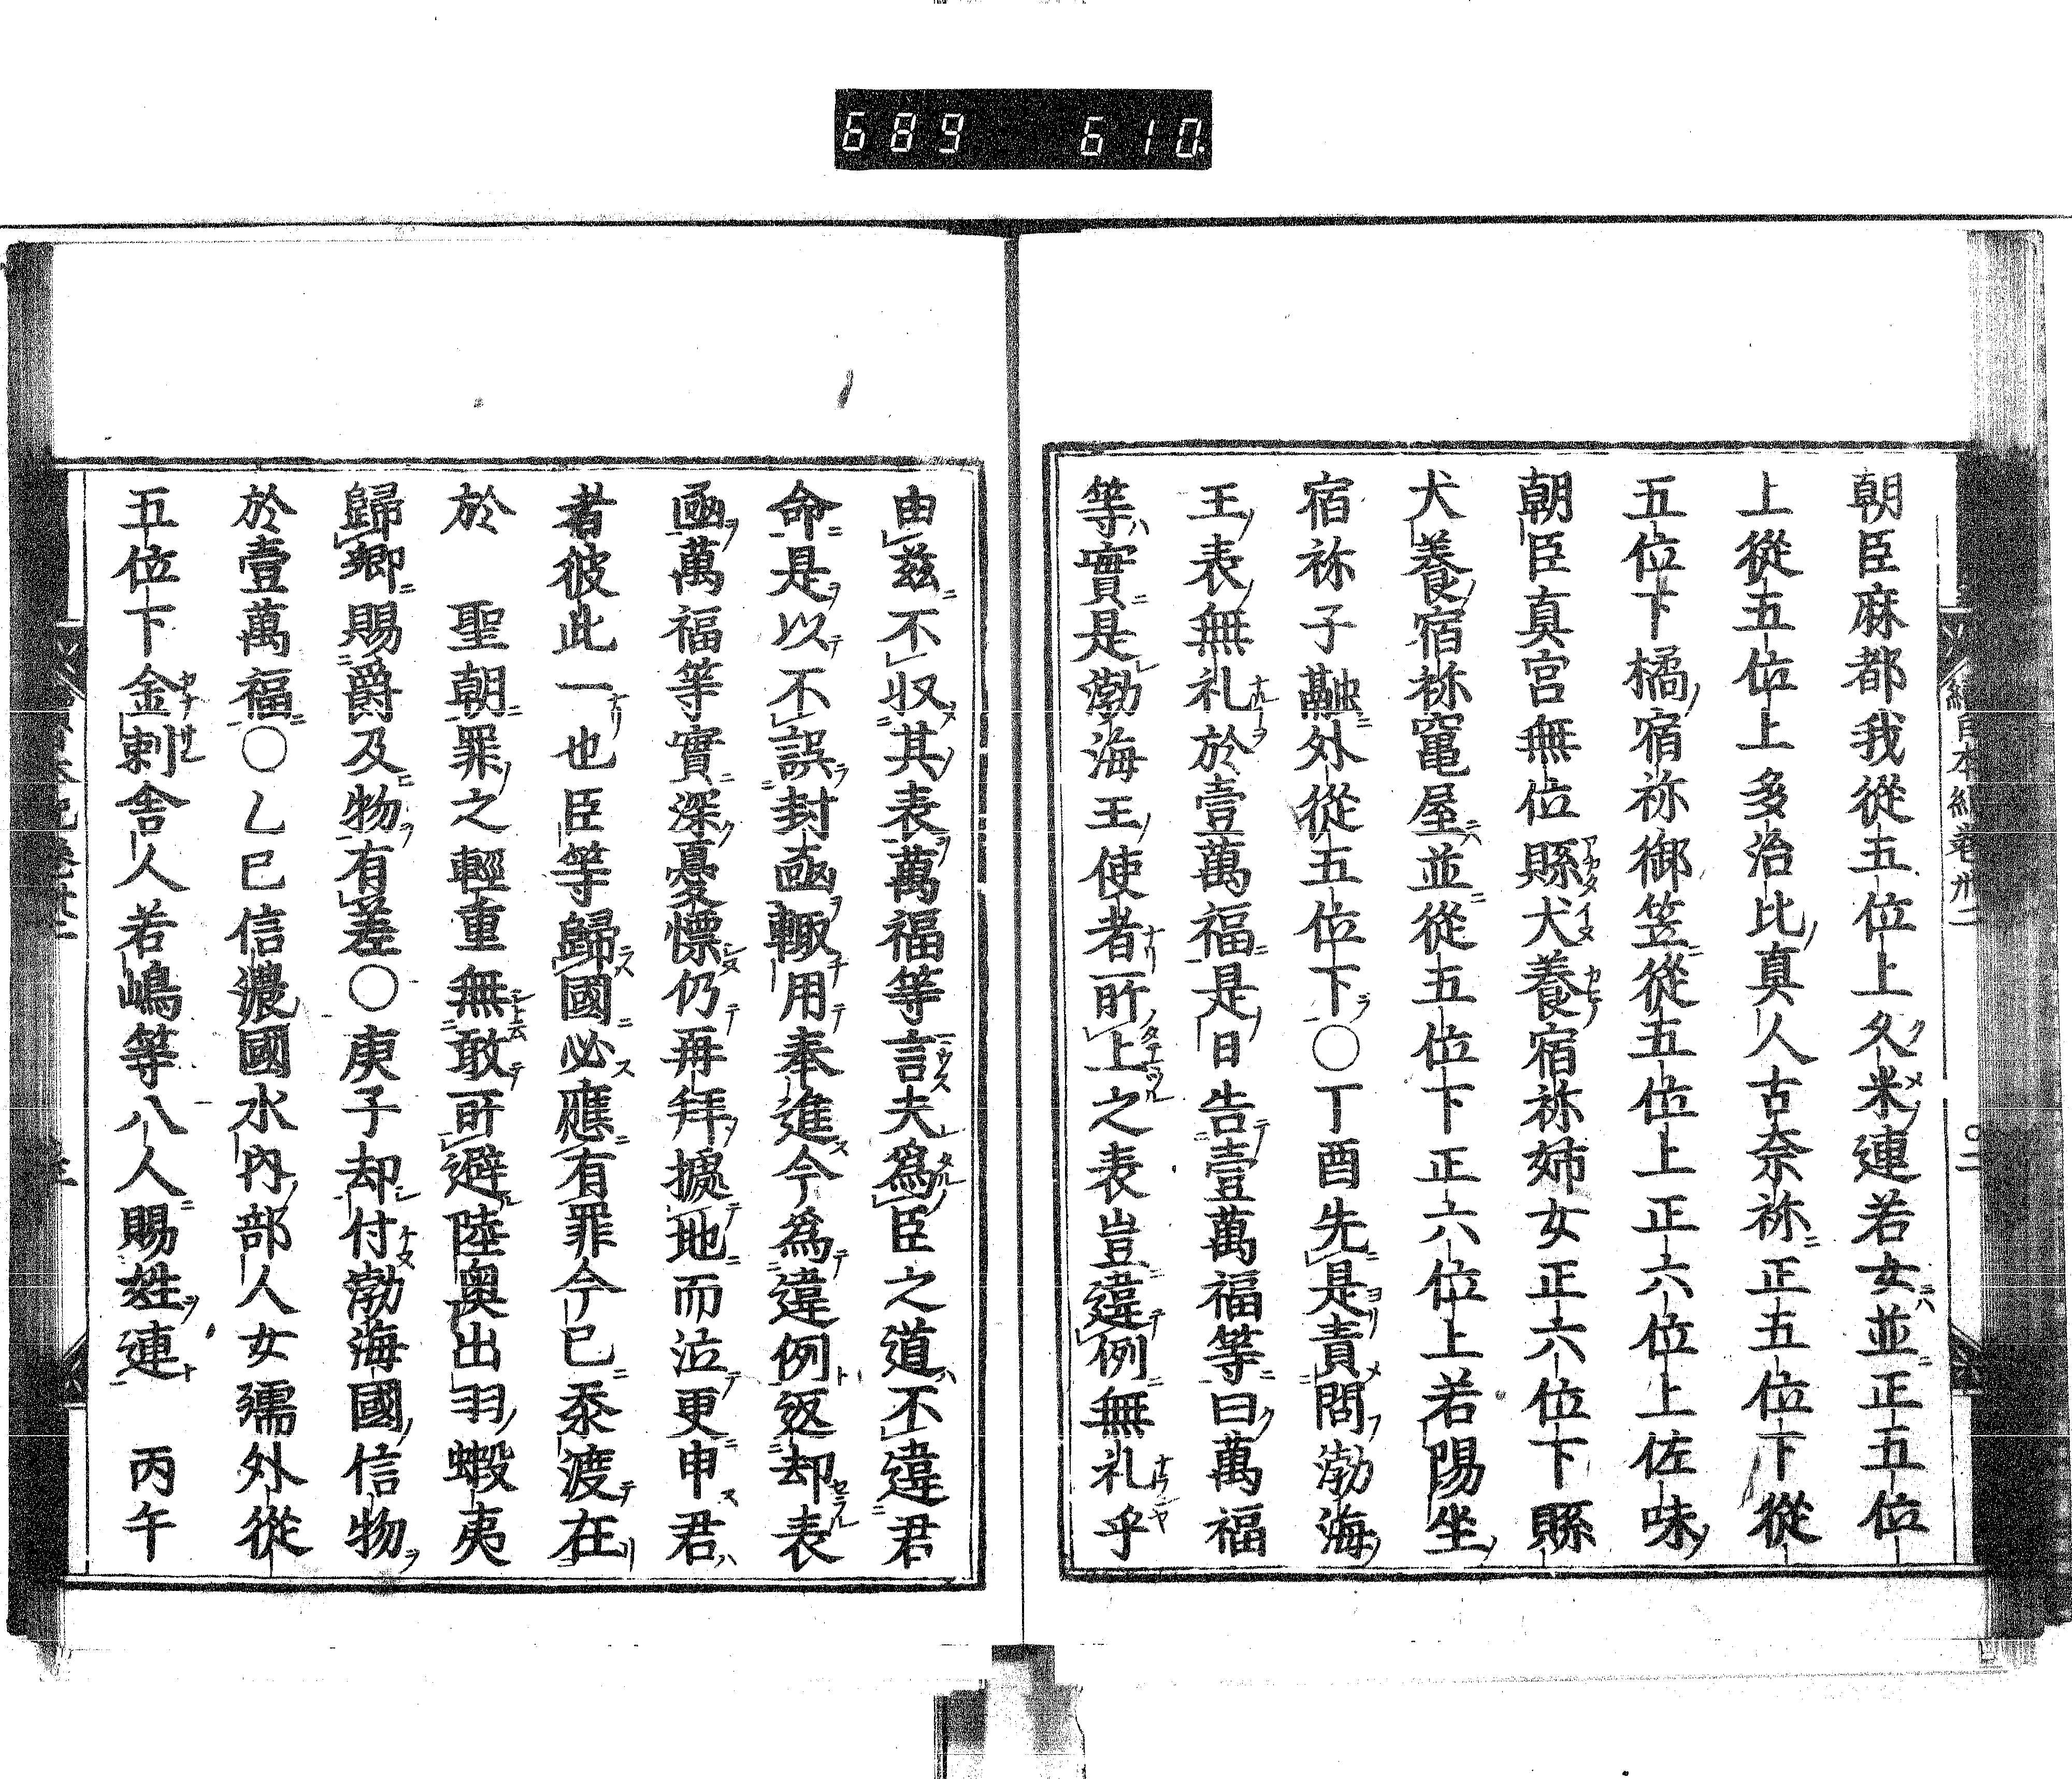 689 610.
朝臣麻都我從五位上久米連若女並正五位
上從五位上多治比真人古奈祢正五位下從
五位下橘宿祢御笠從五位上正六位上佐味
朝臣真宮無位縣犬養宿祢姉女正六位下縣
犬養宿祢竃屋並從五位下正六位上若陽坐
宿祢子虦外從五位下〇丁酉先是責問渤海
王表無礼於壹萬福是日告壹萬福等曰萬福
等實是渤海王使者所上之表豈違例無礼乎
由茲不収其表萬福等言夫爲臣之道不違君
命是以不誤封凾輙用奉進今爲違例返却表
凾萬福等實深憂慄仍再拜據地而泣更申君
者彼此一也臣等歸國必應有罪今已叅渡在
於　聖朝罪之輕重無敢所避陸奥出羽蝦夷
歸鄉賜爵及物有差〇庚子却付渤海國信物
於壹萬福〇乙巳信濃國水內部人女孺外從
五位下金刺舎人若嶋等八人賜姓連　丙午